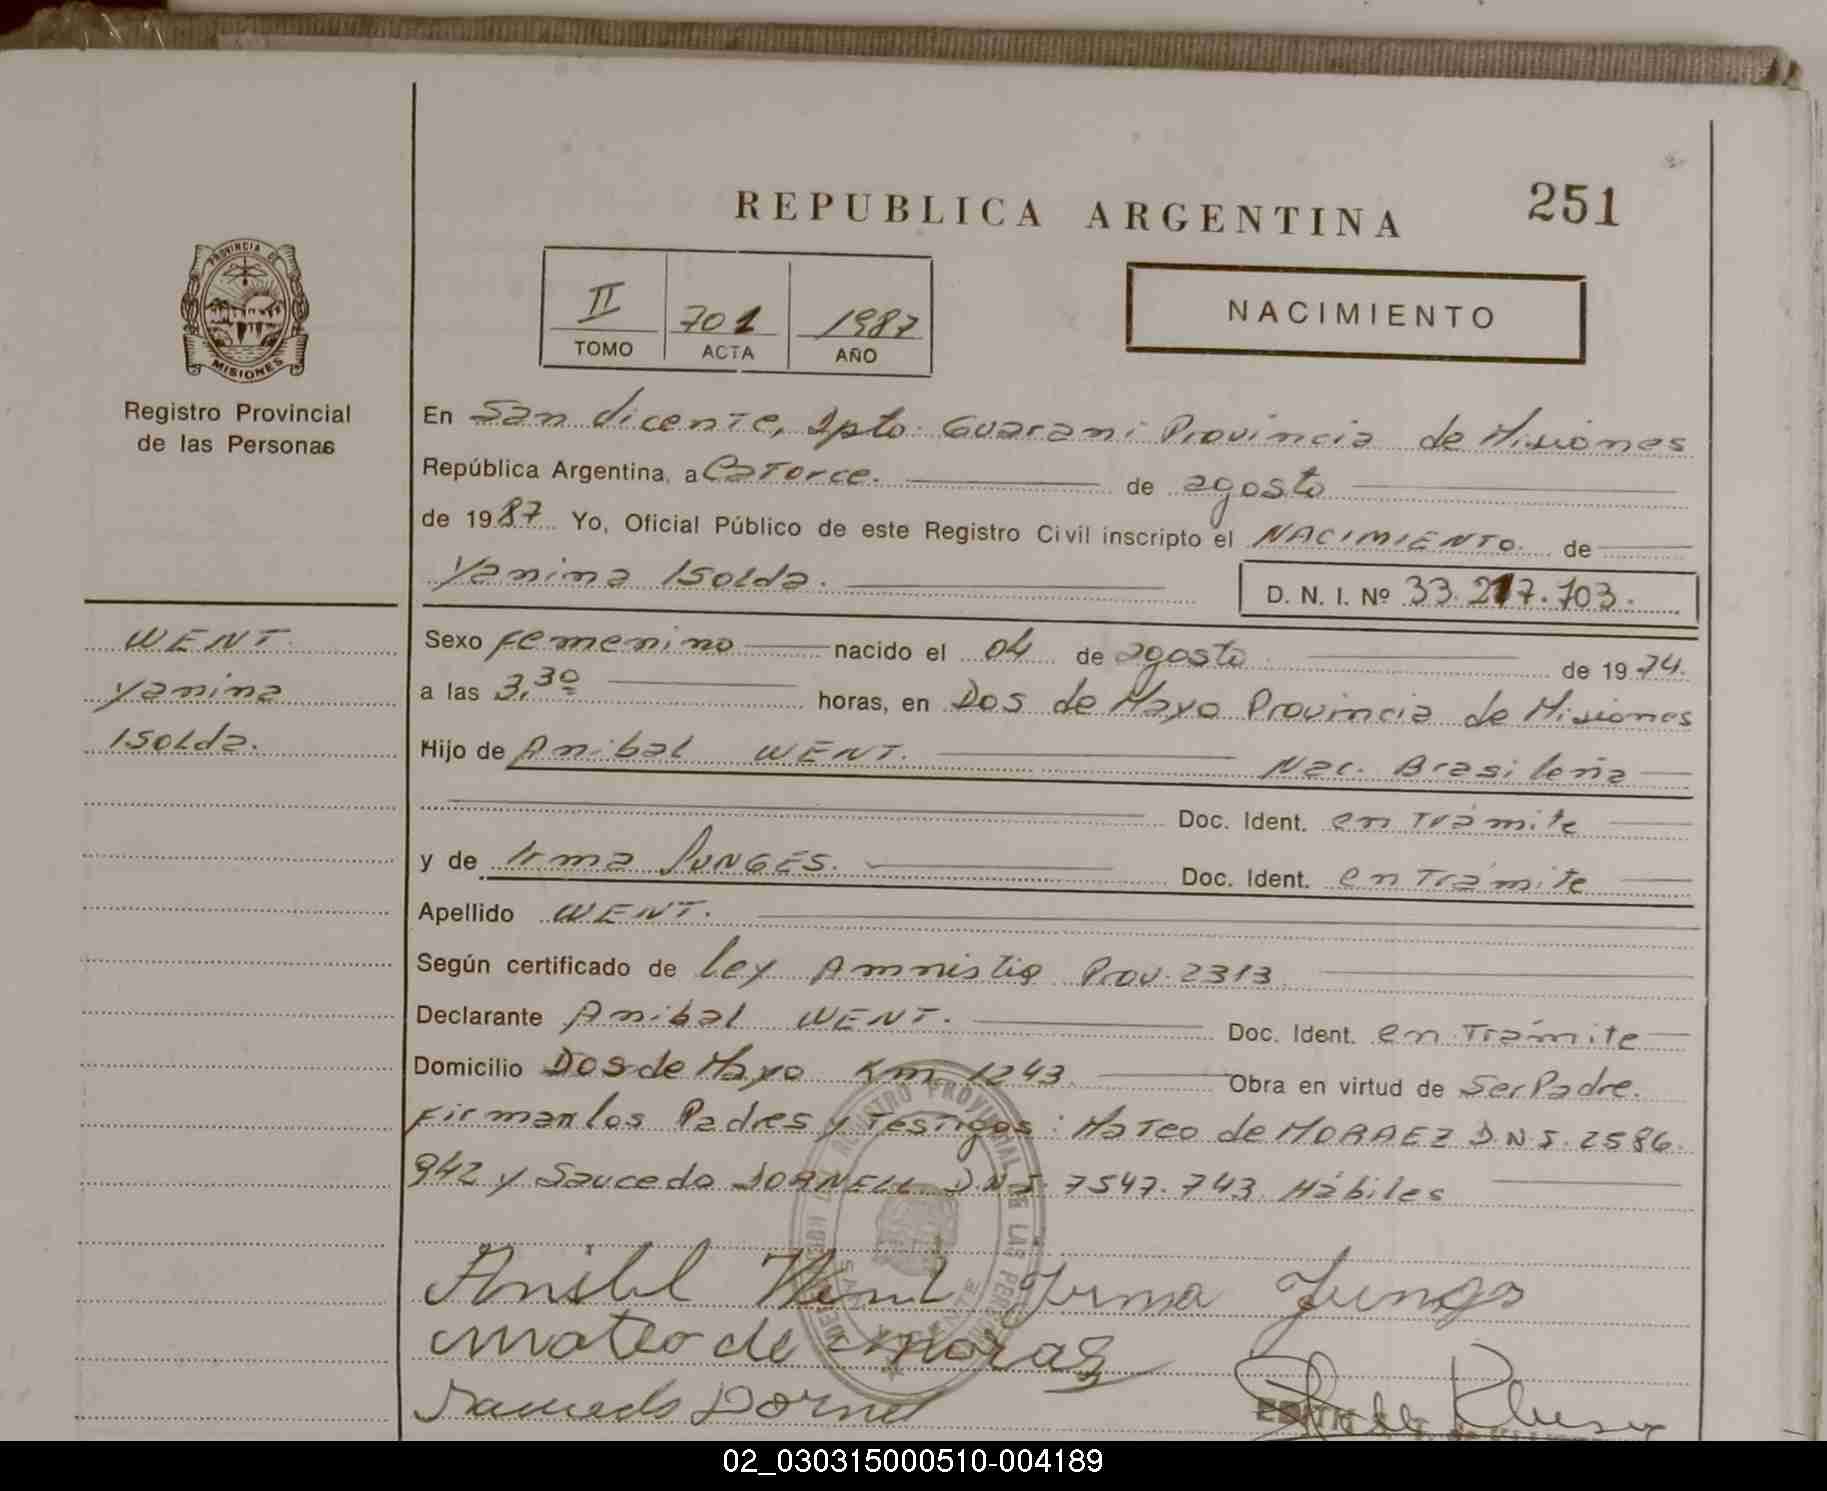 REPUBLICA ARGENTINA
251
PROVINCIA DE
MISIONES
Registro Provincial
de las Personas
II
701
1987
TOMO
ACTA
AÑO
NACIMIENTO
En San Vicente, Dpto. Guarani Provincia de Misiones
República Argentina, a Catorce. de agosto
de 1987 Yo, Oficial Público de este Registro Civil inscripto el NACIMIENTO. de
Yanina Isolda.
D. N. I. Nº 33.217.703.
WENT.
Yanina
Isolda.
Sexo femenino nacido el 04 de agosto de 1974.
a las 3,30 horas, en Dos de Mayo Provincia de Misiones
Hijo de Anibal WENT. Nac. Brasileña
Doc. Ident. en Trámite
y de Irma JUNGES. Doc. Ident. en Trámite
Apellido WENT.
Según certificado de ley Amnistia Prov. 2313
Declarante Anibal WENT. Doc. Ident. en Trámite
Domicilio Dos de Mayo Km 1243 Obra en virtud de Ser Padre.
Firman los Padres y Testigos: Mateo de MORAEZ D.N.I. 2586.
942 y Saucedo DORNELL D.N.I. 7547.743 Hábiles
Anibl Went Jrma Junges
mateo de moraz
Saucedo Dornel
02_030315000510-004189